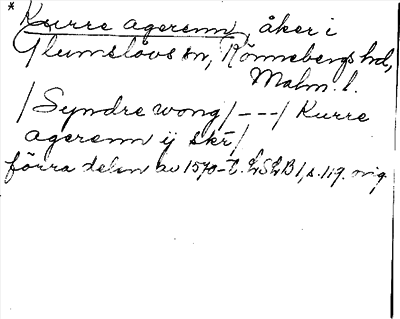 * Kurre agerenn, åker i
Glumslövs sn, Rönnebergs hd,
Malm. l.
/Syndre wong/---/Kurre
agerenn ij skr/
förra delen av 1570-t. LSLB 1, s. 119. orig.